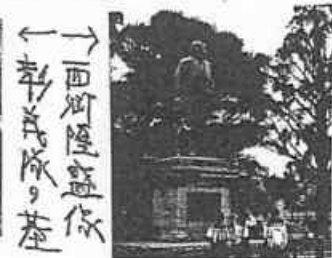 →西郷隆盛像
←彰義隊の墓